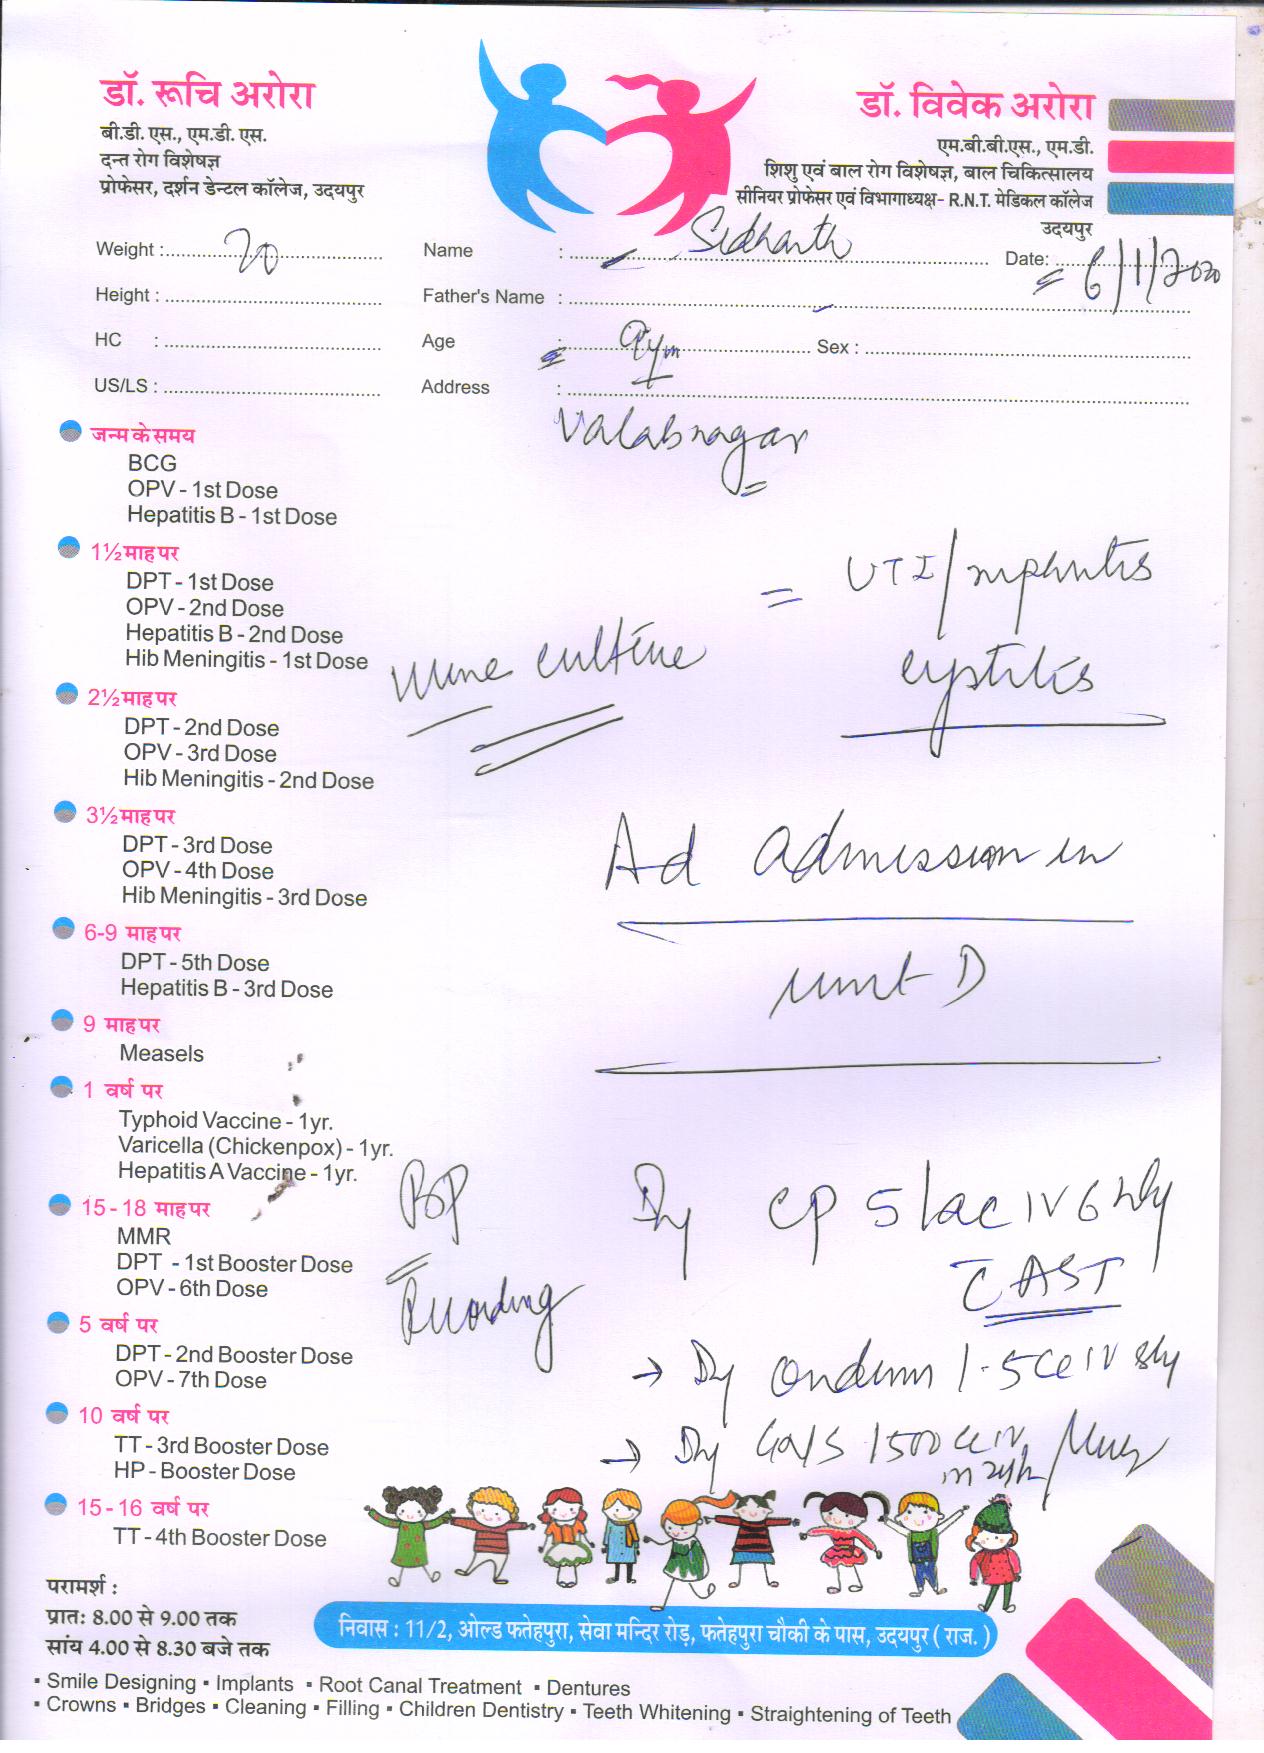 डॉ. रूचि अरोरा
बी.डी. एस., एम.डी. एस.
दन्त रोग विशेषज्ञ
प्रोफेसर, दर्शन डेन्टल कॉलेज, उदयपुर
डॉ. विवेक अरोरा
एम.बी.बी.एस., एम.डी.
शिशु एवं बाल रोग विशेषज्ञ, बाल चिकित्सालय
सीनियर प्रोफेसर एवं विभागाध्यक्ष- R.N.T. मेडिकल कॉलेज
उदयपुर
Weight : 20 Name : Sidharth Date: 6/1/2020
Height : Father's Name :
HC : Age : Sex :
US/LS : Address :
Valabnagar
जन्म के समय
BCG
OPV - 1st Dose
Hepatitis B - 1st Dose
1½ माह पर
DPT - 1st Dose
OPV - 2nd Dose
Hepatitis B - 2nd Dose
Hib Meningitis - 1st Dose
2½ माह पर
DPT - 2nd Dose
OPV - 3rd Dose
Hib Meningitis - 2nd Dose
3½ माह पर
DPT - 3rd Dose
OPV - 4th Dose
Hib Meningitis - 3rd Dose
6-9 माह पर
DPT - 5th Dose
Hepatitis B - 3rd Dose
9 माह पर
Measels
1 वर्ष पर
Typhoid Vaccine - 1yr.
Varicella (Chickenpox) - 1yr.
Hepatitis A Vaccine - 1yr.
15 - 18 माह पर
MMR
DPT - 1st Booster Dose
OPV - 6th Dose
5 वर्ष पर
DPT - 2nd Booster Dose
OPV - 7th Dose
10 वर्ष पर
TT - 3rd Booster Dose
HP - Booster Dose
15 - 16 वर्ष पर
TT - 4th Booster Dose
= UTI/
cystitis
urine culture
Ad admission in
unit D
BP
Recording
CP 5 lac IV 6 hly
AST
1.5 cc IV 8ly
1500 cc IV
in 24h
परामर्श :
प्रातः 8.00 से 9.00 तक
सांय 4.00 से 8.30 बजे तक
निवास : 11/2, ओल्ड फतेहपुरा, सेवा मन्दिर रोड़, फतेहपुरा चौकी के पास, उदयपुर ( राज. )
▪ Smile Designing ▪ Implants ▪ Root Canal Treatment ▪ Dentures
▪ Crowns ▪ Bridges ▪ Cleaning ▪ Filling ▪ Children Dentistry ▪ Teeth Whitening ▪ Straightening of Teeth